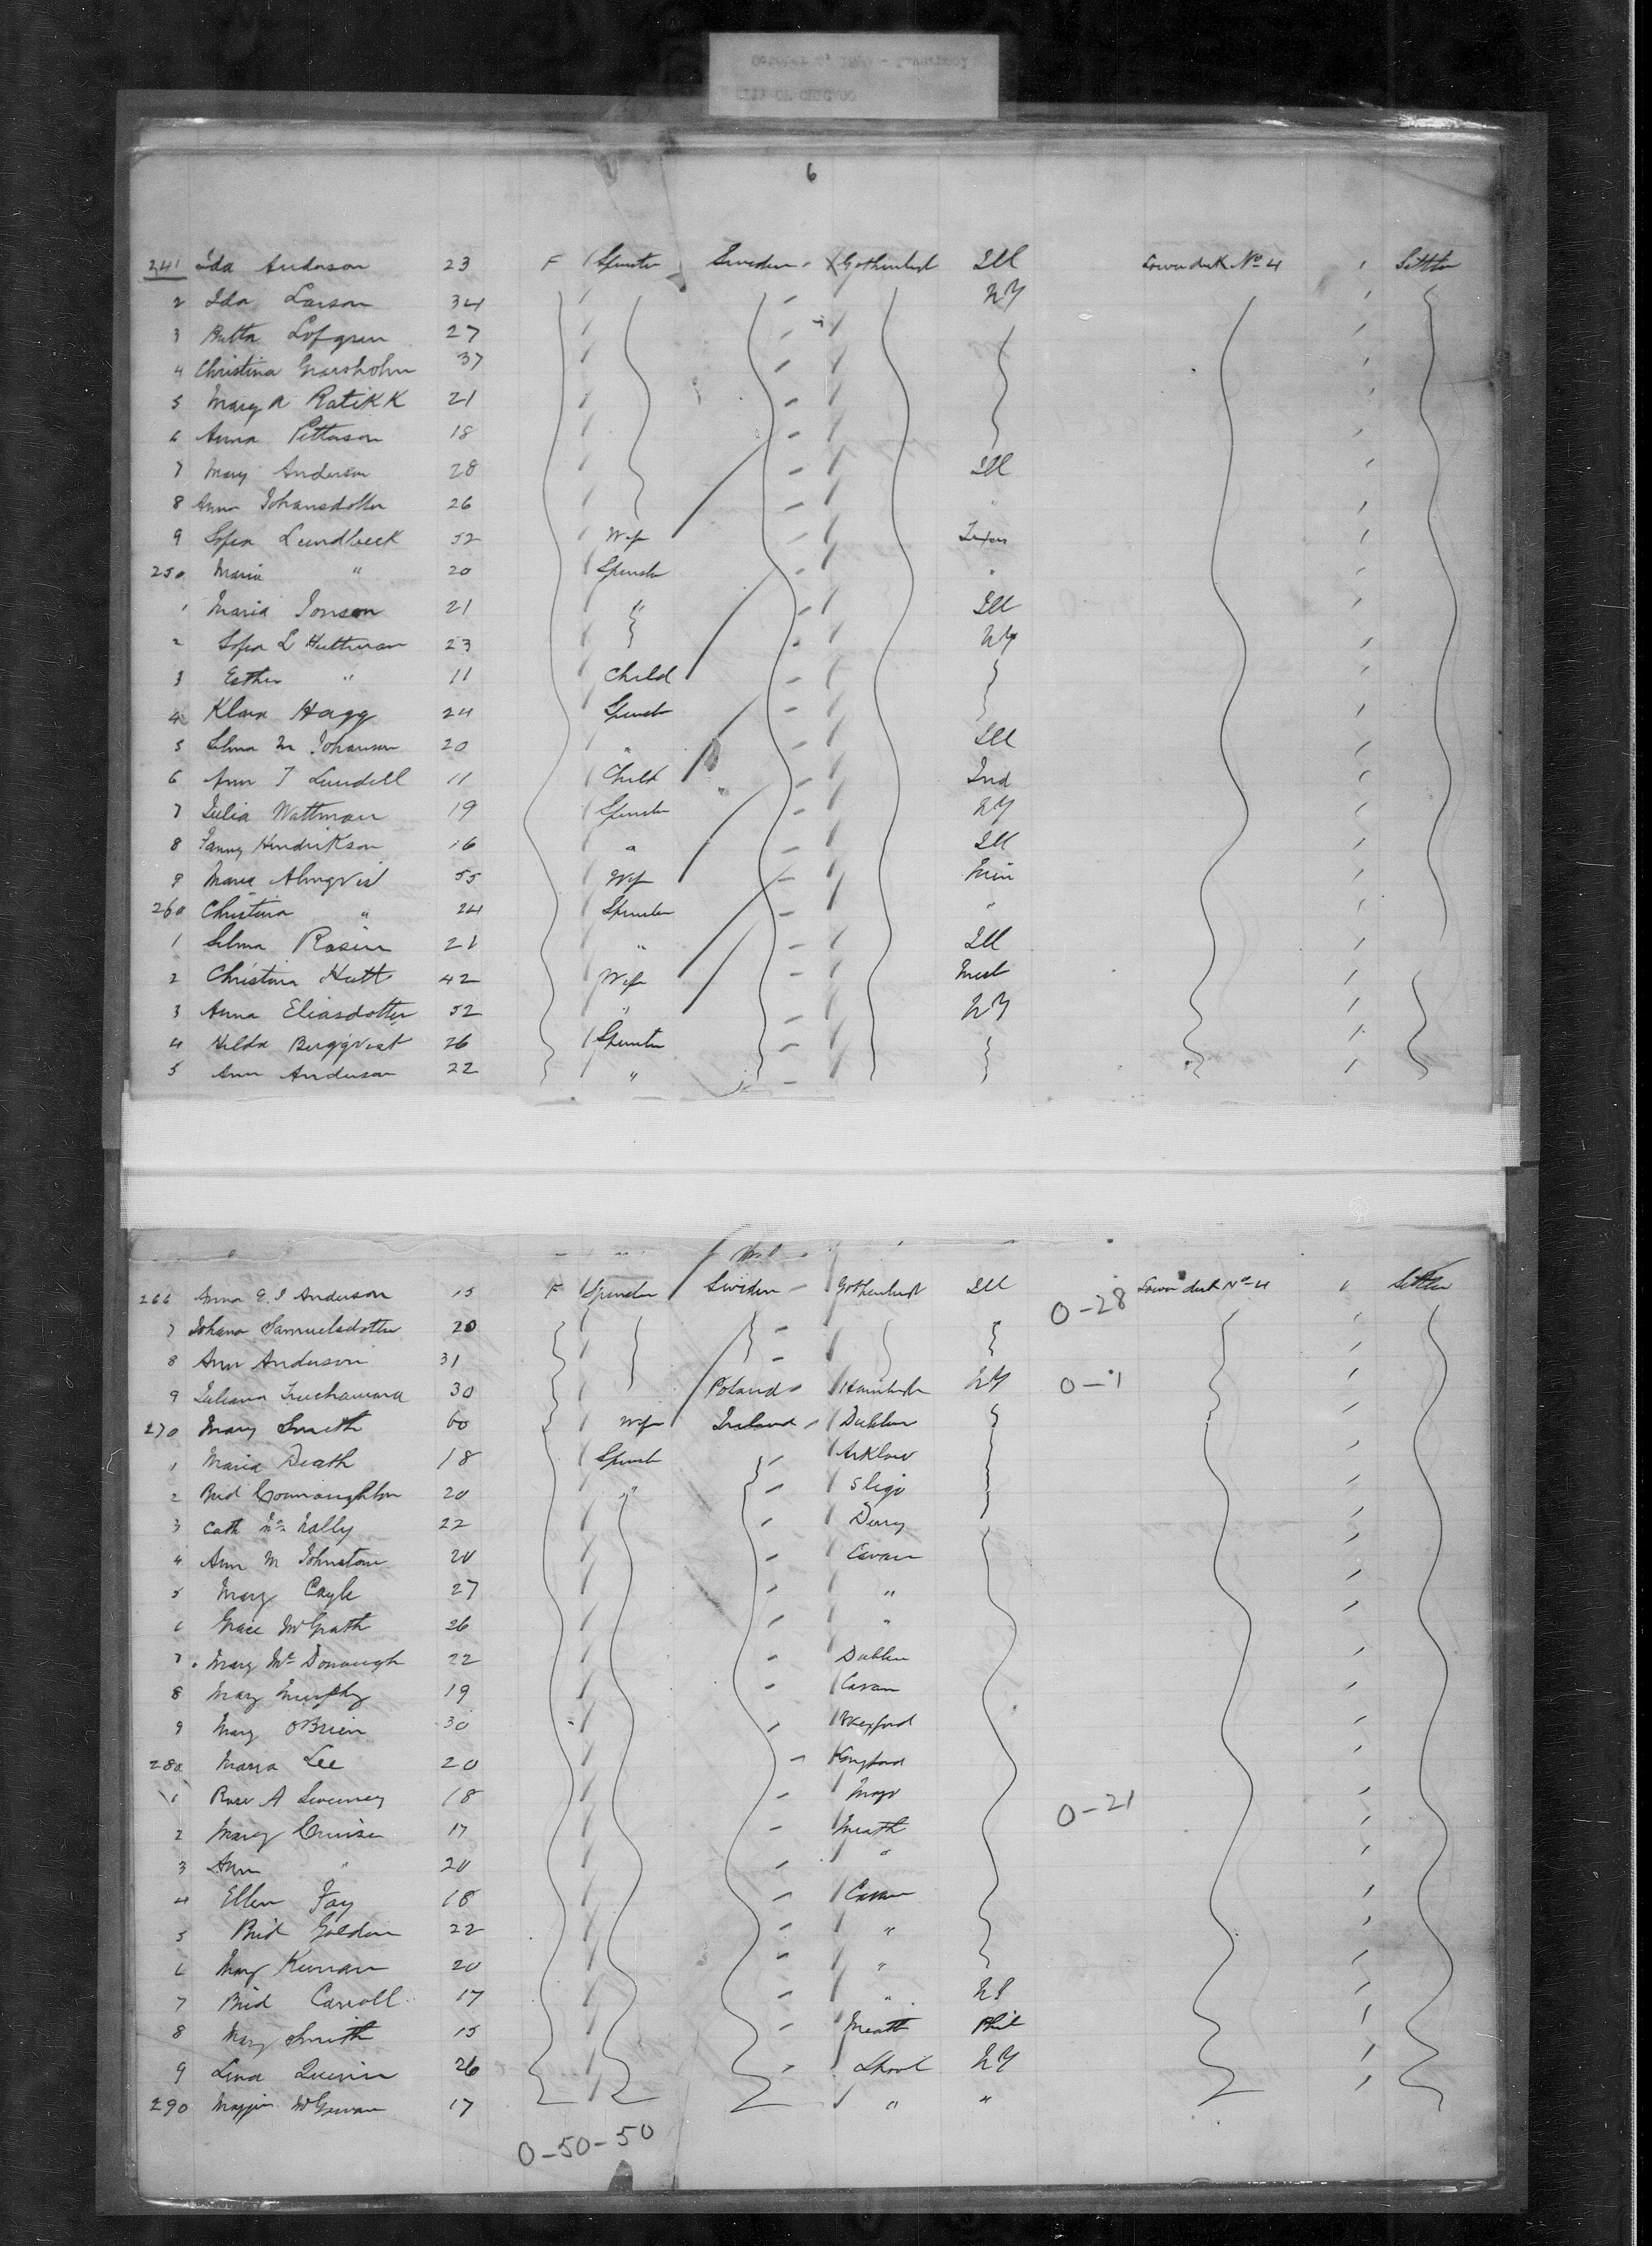 6
241 Ida Anderson 23 F Spinster Sweden Gothenburg Ill Lower deck No 4 Settler
2 Ida Larson 34 NY
3 Lofgren 27
4 Christina 37
5 Mary A Ratikk 21
6 Anna Petterson 18
7 Mary Anderson 28 Ill
8 Anna Johansdotter 26 "
9 Sofia Lundbeck 52 Wife Texas
250 Maria " 20 Spinster "
1 Maria Jonson 21 " Ill
2 Sofia L Hultman 23 NY
3 Esther " 11 Child
4 Klara Hagg 24 Spinster
5 Selma M Johanson 20 " Ill
6 Ann T Lundell 11 Child Ind
7 Julia Wattman 19 Spinster NY
8 Fanny Hendrikson 16 " Ill
9 Maria Almqvist 55 Wife Min
260 Christina " 24 Spinster "
1 Selma Rosin 21 " Ill
2 Christina Hutt 42 Wife
3 Anna Eliasdotter 52 " NY
4 Hilda Bergqvist 26 Spinster
5 Ann Anderson 22 "
266 Anna E. J Anderson 15 F Spinster Sweden Gothenburg Ill 0-28 Lower deck No 4 Settler
7 Johana Samuelsdotter 20
8 Ann Anderson 31
9 Juliana 30 Poland Hamburg NY 0-1
270 Mary Smith 60 Wife Ireland Dublin
1 Maria Death 18 Spinster Arklow
2 Brid Connaughton 20 " Sligo
3 Cath McNally 22 Derry
4 Ann M Johnston 20 Cavan
5 Mary Coyle 27 "
6 Grace McGrath 26 "
7 Mary McDonough 22 Dublin
8 Mary Murphy 19 Cavan
9 Mary OBrien 30 Wexford
280 Maria Lee 20
1 Rose A Sweeney 18 Mayo 0-21
2 Mary Cruise 17 Meath
3 Ann " 20 "
4 Ellen Fay 18 Cavan
5 Brid Golden 22 "
6 Mary Kiernan 20 "
7 Brid Carroll 17 "
8 Mary Smith 15 Meath Phil
9 Lena Quinn 26 NY
290 Maggie McGowan 17 " "
0-50-50